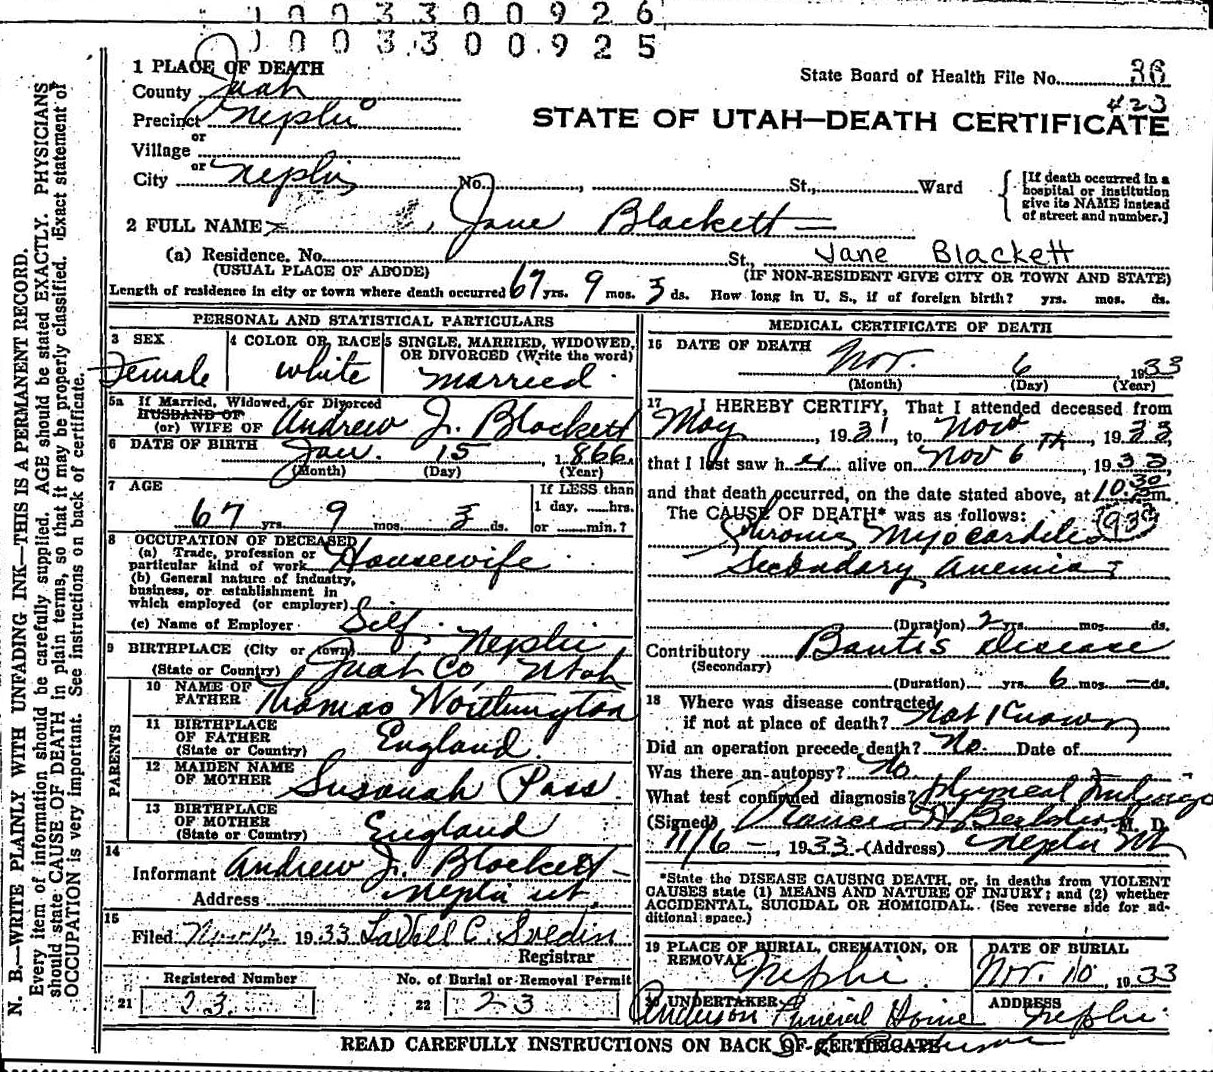 1 0 0 3 3 0 0 9 2 6
1 0 0 3 3 0 0 9 2 5
1 PLACE OF DEATH
State Board of Health File No. 36
County Juab
423
Precinct Nephi
STATE OF UTAH—DEATH CERTIFICATE
or
Village
or
City Nephi No. , St., Ward
[If death occurred in a hospital or institution give its NAME instead of street and number.]
2 FULL NAME Jane Blackett
(a) Residence. No. St., Jane Blackett
(USUAL PLACE OF ABODE) (IF NON-RESIDENT GIVE CITY OR TOWN AND STATE)
Length of residence in city or town where death occurred 67 yrs. 9 mos. 3 ds. How long in U. S., if of foreign birth? yrs. mos. ds.
PERSONAL AND STATISTICAL PARTICULARS
3 SEX
Female
4 COLOR OR RACE
white
5 SINGLE, MARRIED, WIDOWED, OR DIVORCED (Write the word)
married
5a If Married, Widowed, or Divorced
HUSBAND OF
(or) WIFE OF Andrew J. Blackett
6 DATE OF BIRTH Jan. 15, 1866
(Month) (Day) (Year)
7 AGE
67 yrs. 9 mos. 3 ds.
If LESS than
1 day, hrs.
or min.?
8 OCCUPATION OF DECEASED
(a) Trade, profession or
particular kind of work Housewife
(b) General nature of industry,
business, or establishment in
which employed (or employer)
(c) Name of Employer Self.
9 BIRTHPLACE (City or town) Nephi
(State or Country) Juab Co, Utah
PARENTS
10 NAME OF FATHER Thomas Worthington
11 BIRTHPLACE OF FATHER (State or Country) England
12 MAIDEN NAME OF MOTHER Susanah Pass.
13 BIRTHPLACE OF MOTHER (State or Country) England
14
Informant Andrew J. Blackett
Address Nephi Ut.
15
Filed Nov 12 1933 LaVell C. Sredin
Registrar
Registered Number
21 23.
No. of Burial or Removal Permit
22 23
MEDICAL CERTIFICATE OF DEATH
16 DATE OF DEATH
Nov. 6 1933
(Month) (Day) (Year)
17 I HEREBY CERTIFY, That I attended deceased from
May, 1931, to Nov 6 Th, 1933,
that I last saw her alive on Nov 6, 1933,
and that death occurred, on the date stated above, at 10:30 m.
The CAUSE OF DEATH* was as follows:
93
Chronic Myocarditis
Secondary anemia
(Duration) 2 yrs. mos. ds.
Contributory Bantis disease
(Secondary)
(Duration) yrs. 6 mos. — ds.
18 Where was disease contracted
if not at place of death? Not Known
Did an operation precede death? No. Date of
Was there an autopsy? No
What test confirmed diagnosis? Physical Findings
(Signed) M. D.
11/6 —, 1933 (Address) Nephi Ut
*State the DISEASE CAUSING DEATH, or, in deaths from VIOLENT
CAUSES state (1) MEANS AND NATURE OF INJURY; and (2) whether
ACCIDENTAL, SUICIDAL OR HOMICIDAL. (See reverse side for ad-
ditional space.)
19 PLACE OF BURIAL, CREMATION, OR REMOVAL
Nephi.
DATE OF BURIAL
Nov. 10, 1933
20 UNDERTAKER
Anderson Funeral Home
ADDRESS
Nephi.
READ CAREFULLY INSTRUCTIONS ON BACK OF CERTIFICATE
N. B.—WRITE PLAINLY WITH UNFADING INK—THIS IS A PERMANENT RECORD.
Every item of information should be carefully supplied. AGE should be stated EXACTLY. PHYSICIANS
should state CAUSE OF DEATH in plain terms, so that it may be properly classified. Exact statement of
OCCUPATION is very important. See instructions on back of certificate.